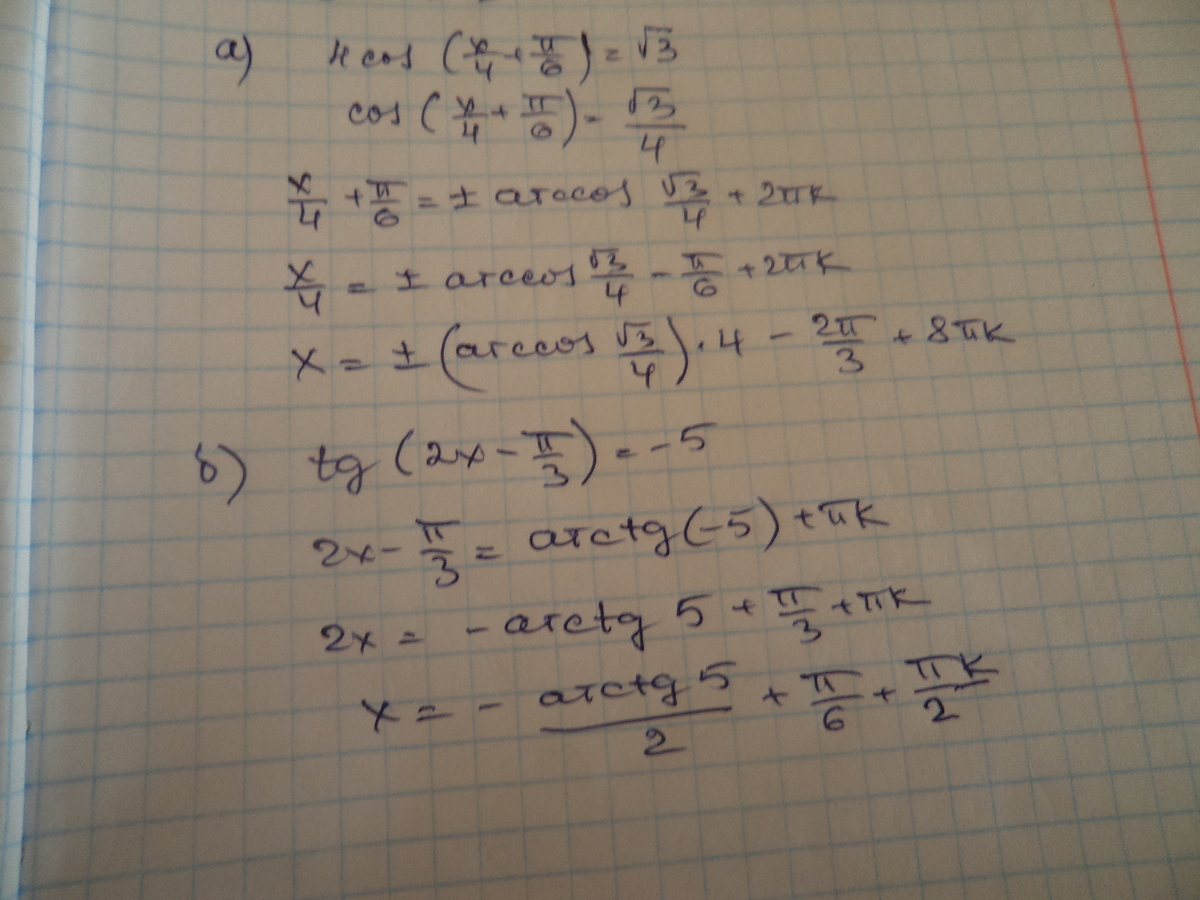 а) 4 cos (x/4 + π/6) = √3
cos (x/4 + π/6) = √3/4
x/4 + π/6 = ± arccos √3/4 + 2πk
x/4 = ± arccos √3/4 - π/6 + 2πk
x = ± (arccos √3/4) · 4 - 2π/3 + 8πk
б) tg (2x - π/3) = -5
2x - π/3 = arctg(-5) + πk
2x = - arctg 5 + π/3 + πk
x = - arctg 5/2 + π/6 + πk/2